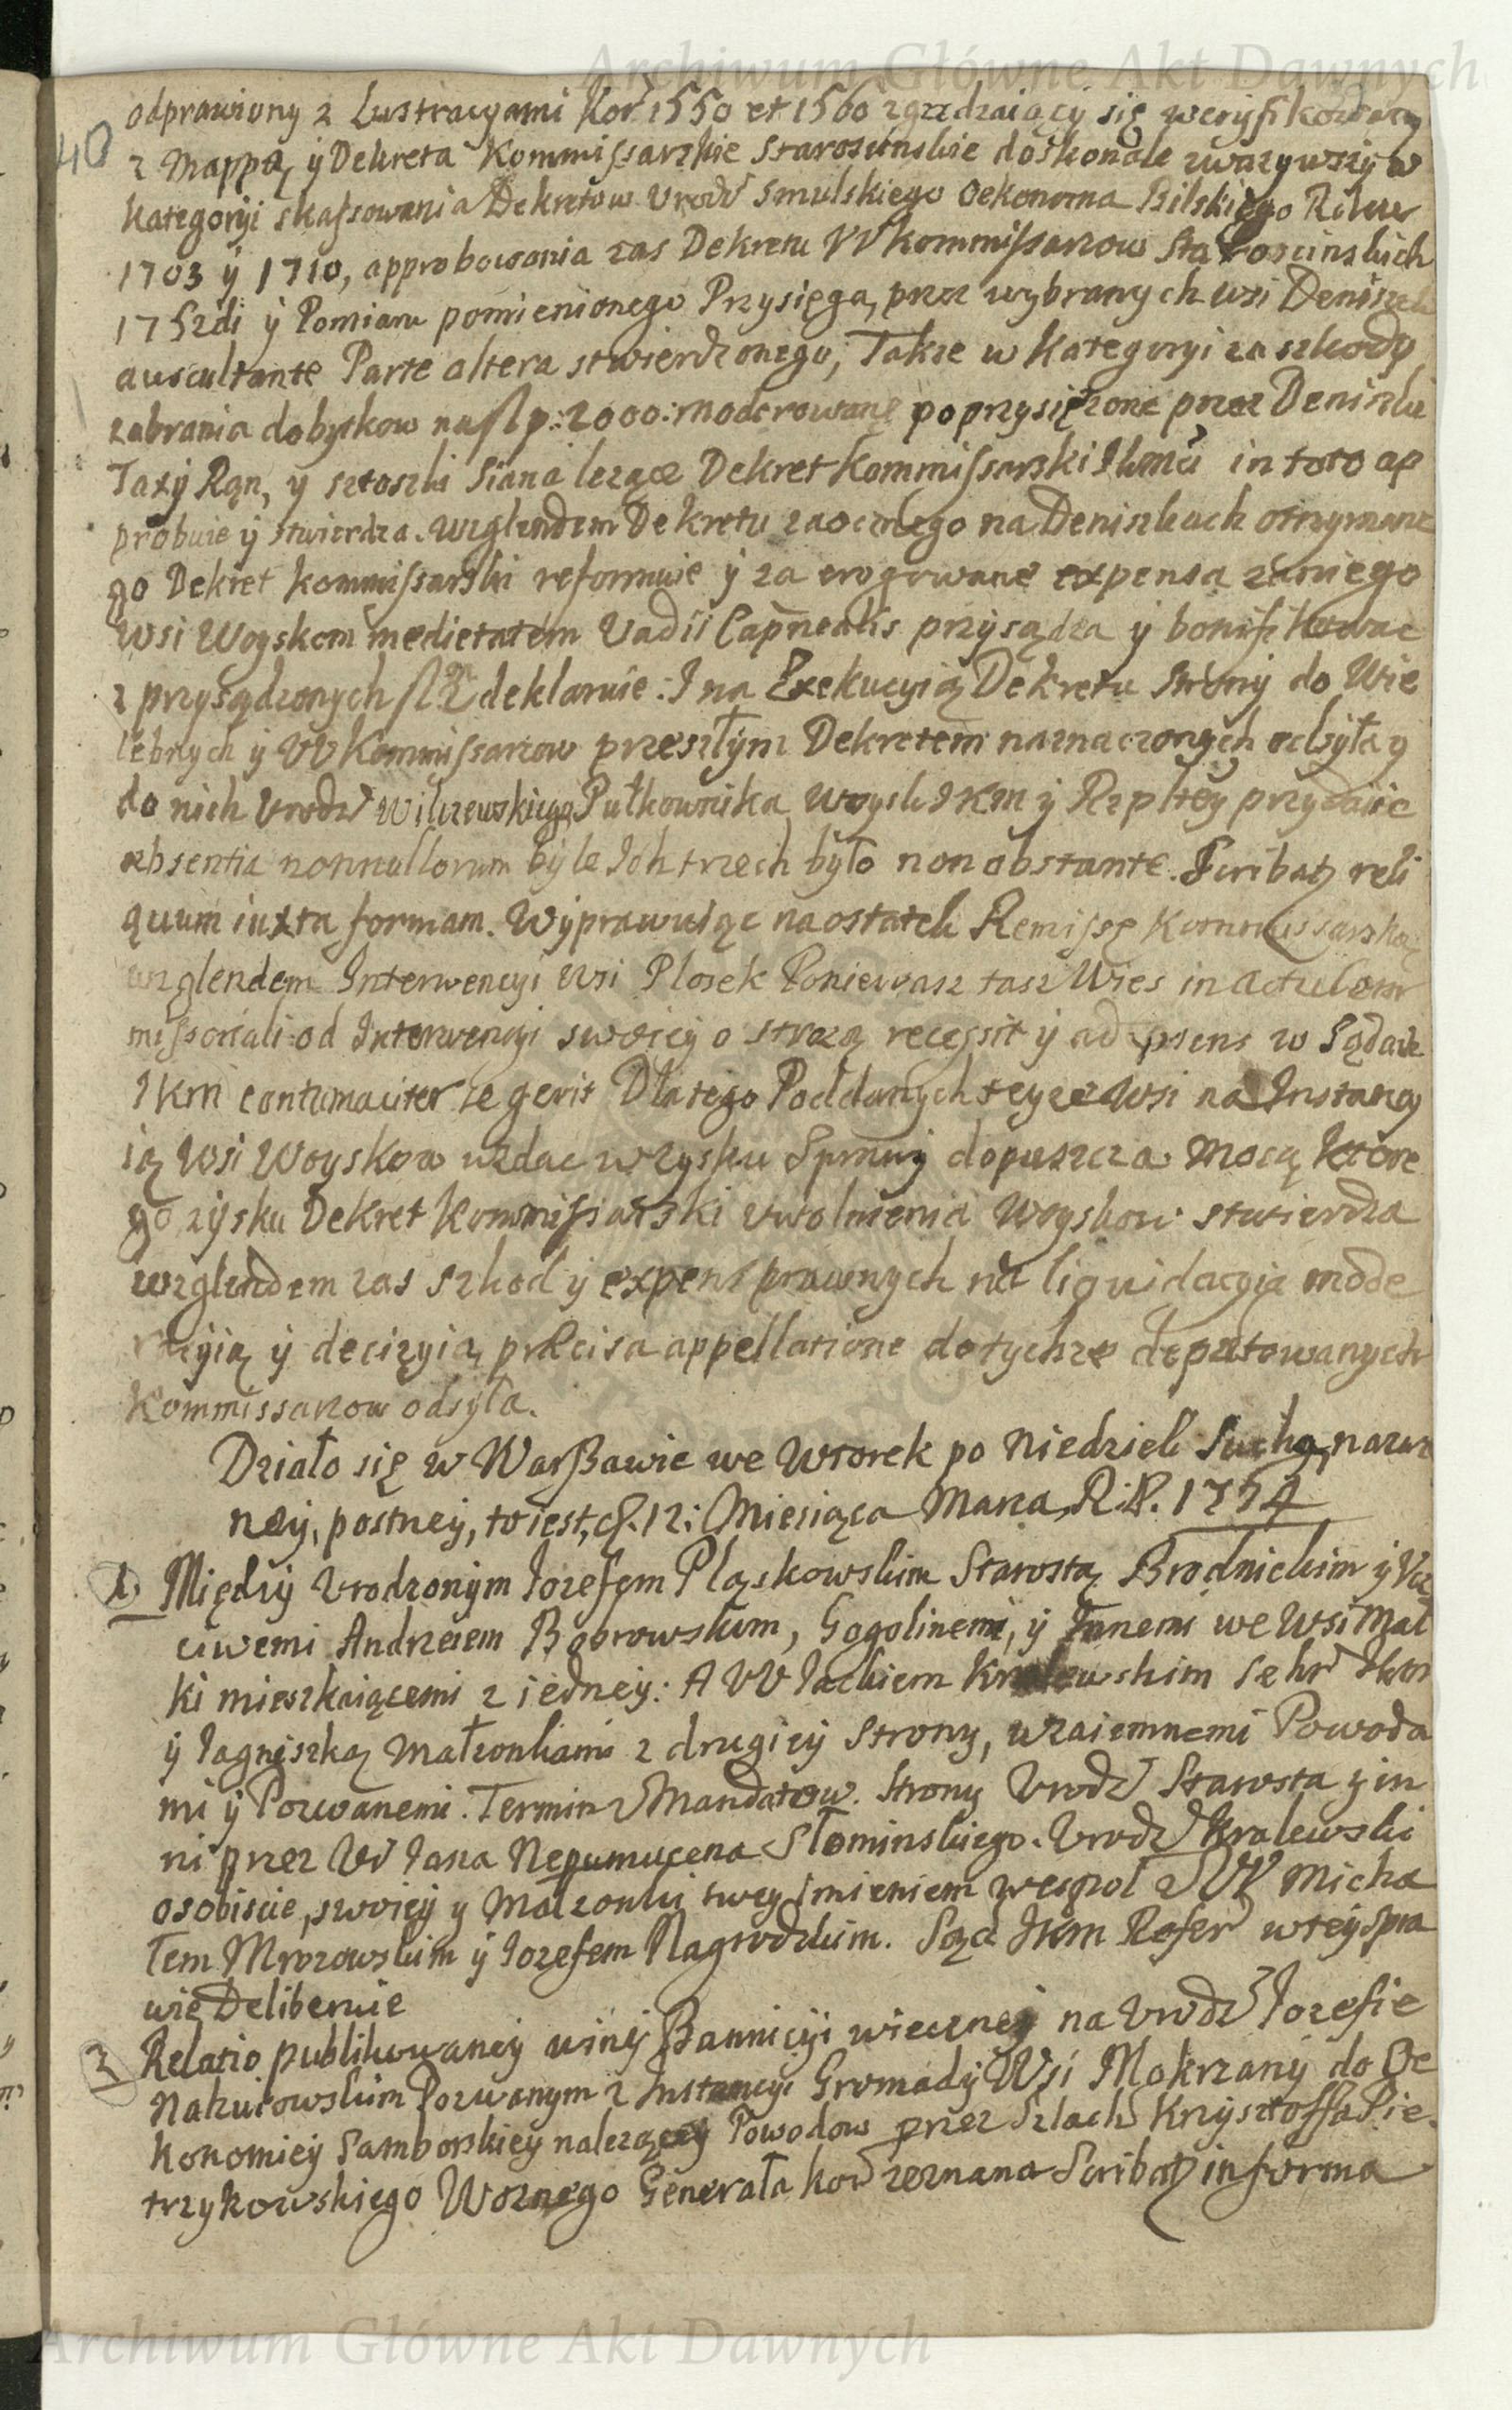 Archiwum Główne Akt Dawnych
40
odprawiony z Lustracyami Kor 1550 et 1560 zgadzaiący się weryfikowany
z Mappą y Dekreta Kommissarskie Starościnskie doskonale zwazywszy w
kategoryi skassowania Dekretow Urodz Smulskiego Oekonoma Bilskiego
1703 y 1710, approbowania zas Dekretu W Kommissarzow Starościnskich
1752di y Pomiaru pomienionego Przysięgą przez wybranych wsi Deniszek
auscultante Parte altera stwierdzonego, Takze w kategoryi za szkody
zabrania dobytkow na zlp: 2000: moderowane poprzysięzone przez Deniszki
Taxy y sztoszki Siana lezące Dekret Kommissarski in toto ap
probuie y stwierdza. Wzglendem Dekretu zaocznego na Deniszkach otrzymane
go Dekret Kommissarski reformuie y za erogowane expensa zaniego
wsi Woyskom medietatem Vadii przysądza y bonifikowac
z przysądzonych deklaruie. I na Exekucyią Dekretu Strony do Wie
lebnych y W Kommissarzow przeszłym Dekretem naznaczonych odsyła y
do nich Urodz Wilczewskiego Pułkownika Woysk JKM y Rzpltey przydaie
absentia nonnullorum byle Ich trzech było non obstante. Scribatz reli
quum iuxta formam. Wyprawuiąc na ostatek Remissę Kommissarską
wzglendem Interwencyi wsi Plosek Poniewasz tasz Wies in actu Com
missoriali od Interwencyi swoiey o strozą recessit y ad praesens w Sądach
JKM contumaciter se gerit Dlatego Poddanych teyze Wsi na Instancy
ią Wsi Woyskow wzdac w zysku Sprawy dopuszcza Mocą ktore
go zysku Dekret Kommissarski uwolnienia Woyskow stwierdza
wzglendem zas szkod y expens prawnych na liquidacyią mode
racyią y decizyią praecisa appellatione dotychze deputowanych
Kommissarzow odsyła.
Działo się w Warszawie we Wtorek po Niedzieli Suchą nazwa
ney, postney, to iest, d. 12: Miesiąca Marca, R.P. 1754
1. Między Urodzonym Iozefem Pląskowskim Starostą Brodnickim y Ucz
ciwemi Andrzeiem Bobrowskim, Gogolinemi, y Innemi we Wsi Mał
ki mieszkaiącemi z iedney: A W Iackiem Kralewskim Sekr JKM
y Iagnieszką Małzonkami z drugiey Strony, wzaiemnemi Powoda
mi y Pozwanemi. Termin z Mandatow. Strony Urodz Starosta y in
ni przez W Iana Nepumucena Słominskiego. Urodz Kralewski
osobiscie, swoiey y Małzonki swey imieniem wespol z W Micha
łem Mrozowskim y Iozefem Nagrodzkim. Sąd JKM Refer w tey Spra
wie Deliberuie
2 Relatio publikowaney winy Bannicyi wieczney na Urodz Iozefie
Nahuiowskim Pozwanym z Instancyi Gromady Wsi Mokrzany do Oe
konomiey Samborskiey nalezącey Powodow przez Szlach Krzysztoffa Pie
trzykowskiego Woznego Generała kor zeznana Scribatz in forma
Archiwum Główne Akt Dawnych